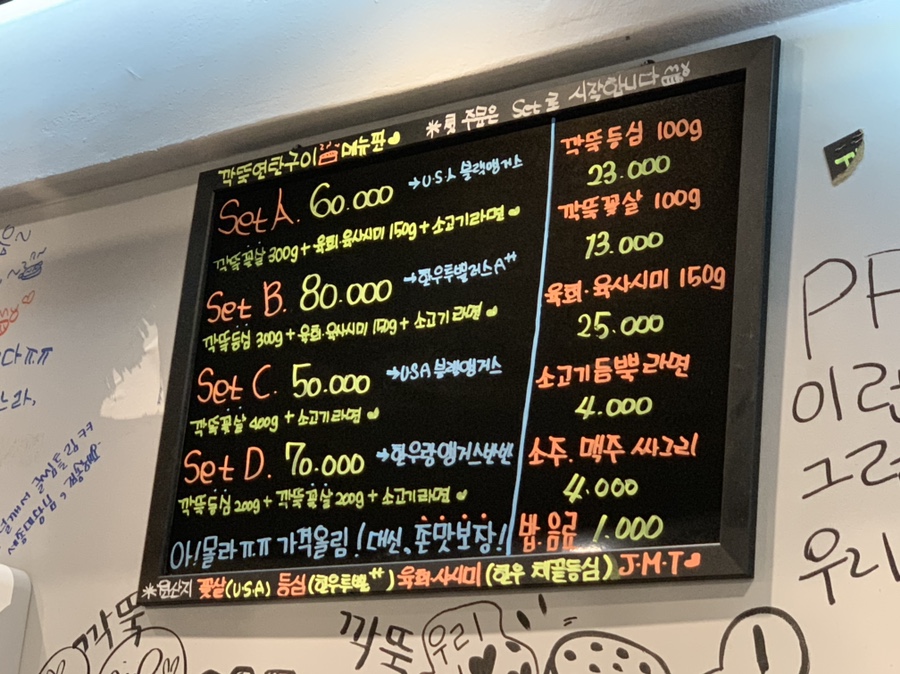 *첫 주문은 Set로 시작합니다
깍뚝연탄구이 메뉴판
Set A. 60.000 →U.S.A 블랙앵거스
깍뚝꽃살 300g + 육회·육사시미 150g + 소고기라면
Set B. 80.000 →한우투뿔러스A++
깍뚝등심 300g + 육회·육사시미 150g + 소고기라면
Set C. 50.000 →USA블랙앵거스
깍뚝꽃살 400g + 소고기라면
Set D. 70.000 →한우랑앵거스반반
깍뚝등심 200g + 깍뚝꽃살 200g + 소고기라면
아!몰라ㅠㅠ 가격올림! 대신, 존맛보장!!
깍뚝등심 100g
23.000
깍뚝꽃살 100g
13.000
육회·육사시미 150g
25.000
소고기듬뿍라면
4.000
소주. 맥주 싸그리
4.000
밥.음료 1.000
*원산지 꽃살(USA) 등심(한우투뿔++) 육회·사시미(한우 채끝등심) J·M·T
이런
우리
깍뚝
깍뚝
우리